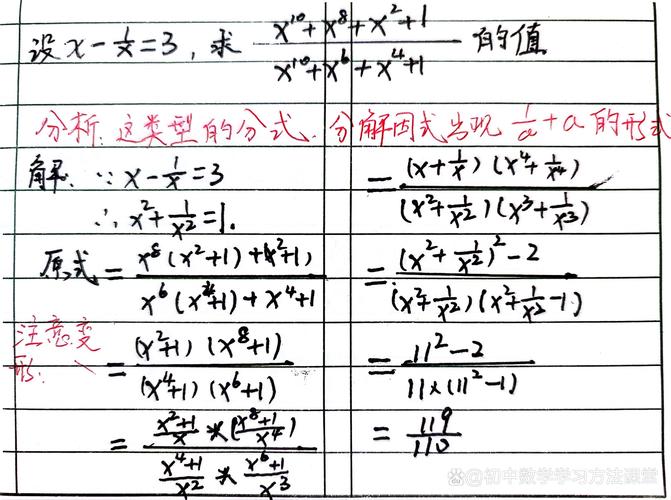 设 x - 1/x = 3, 求 (x^10 + x^8 + x^2 + 1)/(x^10 + x^6 + x^4 + 1) 的值
分析: 这类型的分式. 分解因式出现 1/a + a 的形式
解: ∵ x - 1/x = 3
∴ x^2 + 1/x^2 = 11.
原式 = (x^8(x^2+1) + (x^2+1))/(x^6(x^4+1) + x^4+1)
注意变形: = ((x^2+1)(x^8+1))/((x^4+1)(x^6+1))
= ((x^2+1)/x * ((x^8+1)/x^4))/((x^4+1)/x^2 * (x^6+1)/x^3)
= ((x + 1/x)(x^4 + 1/x^4))/((x^2 + 1/x^2)(x^3 + 1/x^3))
= ((x^2 + 1/x^2)^2 - 2)/((x^2 + 1/x^2)(x^2 + 1/x^2 - 1))
= (11^2 - 2)/(11×(11^2 - 1))
= 119/110
初中数学学习方法课堂